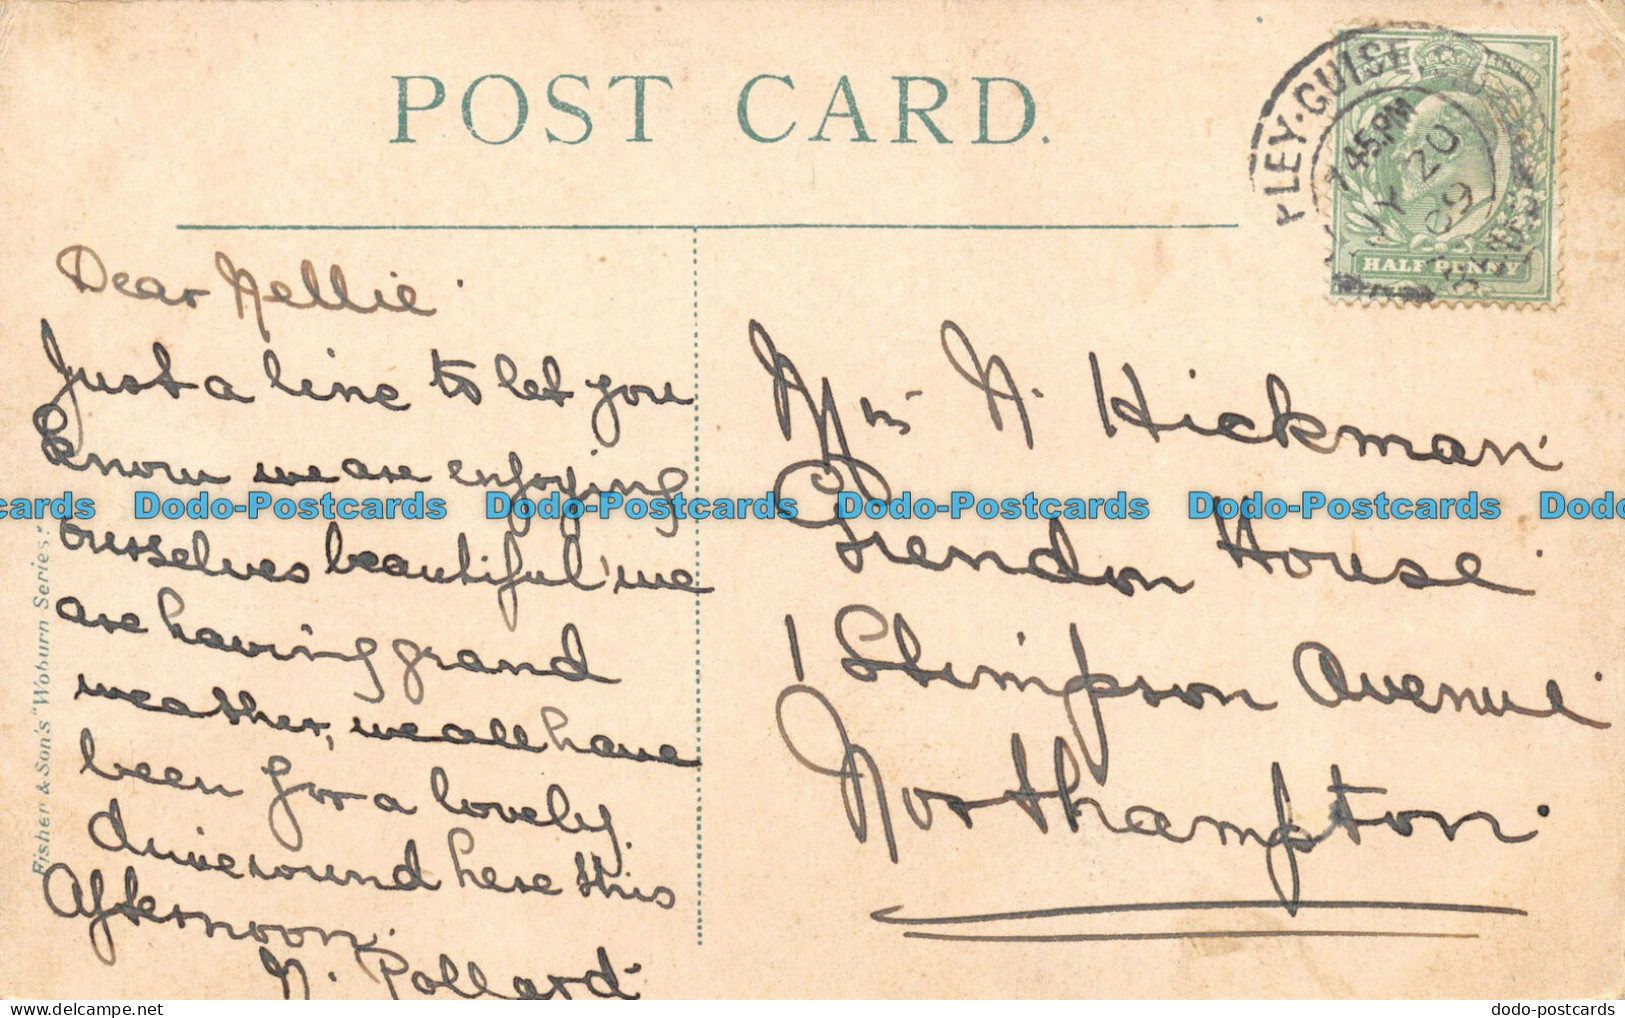 POST CARD.
PLEY·GUISE
7 45 PM
JY 20
09
HALF PENNY
Dear Nellie
Just a line to let you
know we are enjoying
ourselves beautiful we
are having grand
weather, we all have
been for a lovely
drive round here this
Afternoon.
N. Pollard
Mrs N. Hickman
Grendon House
1 Stimpson Avenue
Northampton.
Fisher & Son's "Woburn Series."
Dodo-Postcards Dodo-Postcards Dodo-Postcards Dodo-Postcards Dodo-Postcards
dodo-postcards
dodo-postcards